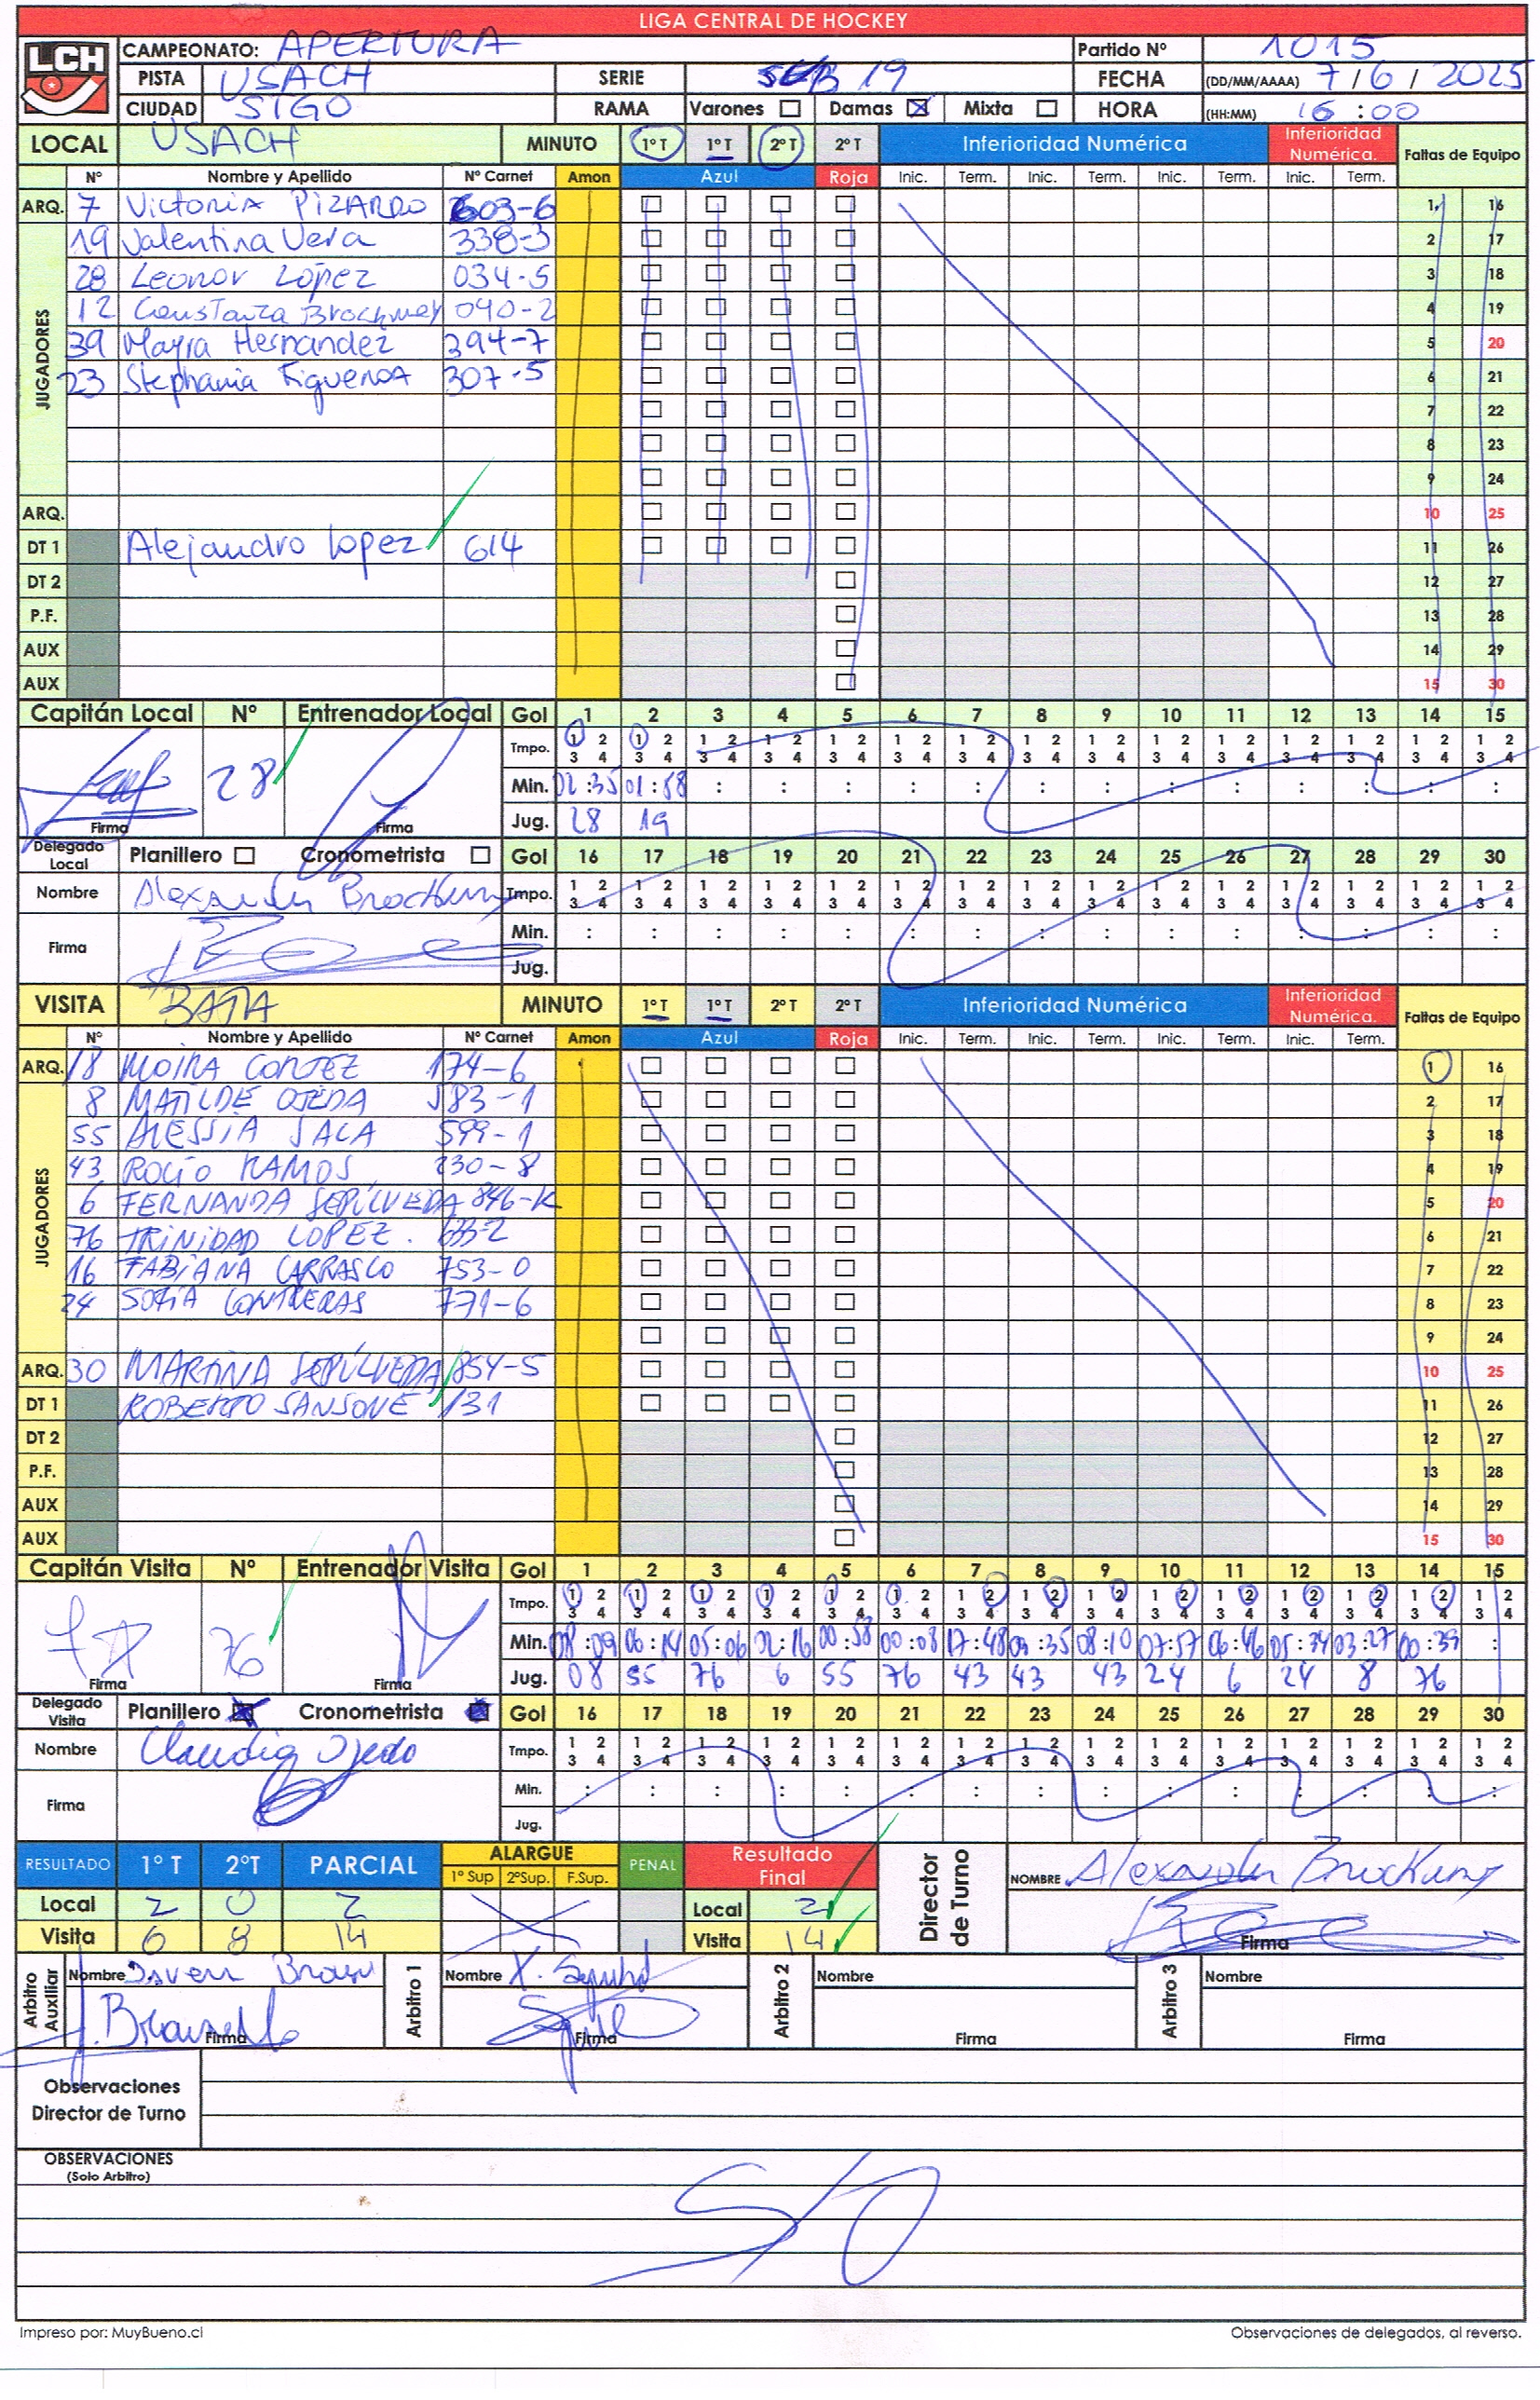 LIGA CENTRAL DE HOCKEY
LCH
CAMPEONATO: APERTURA Partido Nº 1015
PISTA USACH SERIE SUB 19 FECHA (DD/MM/AAAA) 7 / 6 / 2025
CIUDAD STGO RAMA Varones Damas Mixta HORA (HH:MM) 16 : 00
LOCAL USACH MINUTO 1º T 1º T 2º T 2º T Inferioridad Numérica Inferioridad Numérica. Faltas de Equipo
Nº Nombre y Apellido Nº Carnet Amon Azul Roja Inic. Term. Inic. Term. Inic. Term. Inic. Term.
ARQ. 7 Victoria PIZARRO 603-6 1 16
JUGADORES
19 Valentina Vera 338-3 2 17
28 Leonor López 034-5 3 18
12 Constanza Brockmey 040-2 4 19
39 Mayra Hernandez 394-7 5 20
23 Stephania Figueroa 307-5 6 21
7 22
8 23
9 24
ARQ. 10 25
DT 1 Alejandro Lopez 614 11 26
DT 2 12 27
P.F. 13 28
AUX 14 29
AUX 15 30
Capitán Local Nº Entrenador Local Gol 1 2 3 4 5 6 7 8 9 10 11 12 13 14 15
Tmpo. 1 2 1 2 1 2 1 2 1 2 1 2 1 2 1 2 1 2 1 2 1 2 1 2 1 2 1 2 1 2
3 4 3 4 3 4 3 4 3 4 3 4 3 4 3 4 3 4 3 4 3 4 3 4 3 4 3 4 3 4
28 Min. 02:35 01:58 : : : : : : : : : : : : :
Firma Firma Jug. 28 19
Delegado Local Planillero Cronometrista Gol 16 17 18 19 20 21 22 23 24 25 26 27 28 29 30
Nombre Alexander Tmpo. 1 2 1 2 1 2 1 2 1 2 1 2 1 2 1 2 1 2 1 2 1 2 1 2 1 2 1 2 1 2
3 4 3 4 3 4 3 4 3 4 3 4 3 4 3 4 3 4 3 4 3 4 3 4 3 4 3 4 3 4
Firma Min. : : : : : : : : : : : : : : :
Jug.
VISITA BATA MINUTO 1º T 1º T 2º T 2º T Inferioridad Numérica Inferioridad Numérica. Faltas de Equipo
Nº Nombre y Apellido Nº Carnet Amon Azul Roja Inic. Term. Inic. Term. Inic. Term. Inic. Term.
ARQ. 18 MOIRA CORTEZ 174-6 1 16
JUGADORES
8 MATILDE OJEDA 583-1 2 17
55 ALESSIA SALA 599-1 3 18
43 ROCÍO RAMOS 230-8 4 19
6 FERNANDA SEPÚLVEDA 846-K 5 20
76 TRINIDAD LOPEZ. 6 21
16 FABIANA CARRASCO 753-0 7 22
24 SOFÍA CONTRERAS 771-6 8 23
9 24
ARQ. 30 MARTINA SEPÚLVEDA 854-5 10 25
DT 1 ROBERTO SANSONE 131 11 26
DT 2 12 27
P.F. 13 28
AUX 14 29
AUX 15 30
Capitán Visita Nº Entrenador Visita Gol 1 2 3 4 5 6 7 8 9 10 11 12 13 14 15
Tmpo. 1 2 1 2 1 2 1 2 1 2 1 2 1 2 1 2 1 2 1 2 1 2 1 2 1 2 1 2 1 2
3 4 3 4 3 4 3 4 3 4 3 4 3 4 3 4 3 4 3 4 3 4 3 4 3 4 3 4 3 4
76 Min. 08:09 06:14 05:06 02:16 00:58 00:08 17:48 09:35 08:10 07:57 06:46 05:34 03:27 00:39 :
Firma Firma Jug. 08 55 76 6 55 76 43 43 43 24 6 24 8 76
Delegado Visita Planillero Cronometrista Gol 16 17 18 19 20 21 22 23 24 25 26 27 28 29 30
Nombre Claudia Ojeda Tmpo. 1 2 1 2 1 2 1 2 1 2 1 2 1 2 1 2 1 2 1 2 1 2 1 2 1 2 1 2 1 2
3 4 3 4 3 4 3 4 3 4 3 4 3 4 3 4 3 4 3 4 3 4 3 4 3 4 3 4 3 4
Firma Min. : : : : : : : : : : : : : : :
Jug.
RESULTADO 1º T 2ºT PARCIAL ALARGUE 1º Sup 2ºSup. F.Sup. PENAL Resultado Final Director de Turno NOMBRE Alexander
Local 2 0 2 Local 2
Visita 6 8 14 Visita 14 Firma
Arbitro Auxiliar Nombre Arbitro 1 Nombre Arbitro 2 Nombre Arbitro 3 Nombre
Firma Firma Firma Firma
Observaciones
Director de Turno
OBSERVACIONES
(Solo Arbitro)
S/O
Impreso por: MuyBueno.cl Observaciones de delegados, al reverso.